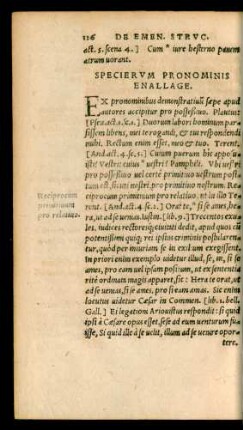 116 DE EMEN. STRVC.
act. 5. scena 4.] Cum iure hesterno panem
atrum uorant.
SPECIERVM PRONOMINIS
ENALLAGE.
EX pronominibus demonstratiuis sæpe apud
autores accipitur pro possessiuo. Plautus:
Duorum labori hominum par-
sissem lubens, mei te rogandi, & tui respondendi
mihi. Rectum enim esset, meo & tuo. Terent.
[And. act. 4. sc. 1.] Cuium puerum hic
pro possessiuo uel certè primitiuo uestrum posi-
tum est, sicuti nostri, pro primitiuo nostrum. Re-
ciprocum primitiuum pro relatiuo, ut in illo Te-
Reciprocum
primitiuum
pro relatiuo.
rent. [And. act. 4. sc. 1.] si se ames, he-
ra, ut ad se uenias. Iustin. [lib. 9.] Trecentos exu-
les, iudices rectoresq; ciuitati dedit, apud quos cũ
potentissimi quiq; rei ipsius criminis postularen-
tur, quòd per iniuriam se in exilium exegissent.
In priori enim exemplo uidetur illud, se, in, si se
ames, pro eam uel ipsam positum, ut ex sententiæ
rité ordinatis magis apparet, sic: Hera te orat, ut
ad se uenias, si se ames, pro si eam amas. Sic enim
locutus uidetur Cæsar in Commen. [lib. 1. bell.
Gall.] Ei legationi Ariouistus respondit: si quid
ipsi à Cæsare opus esset, sese ad eum uenturum fu-
isse, Si quid ille à se uelit, illum ad se uenire opor-
tere.